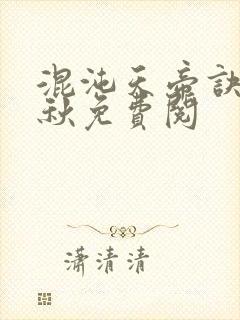 混沌天帝訣
秋免費閱
瀟清清